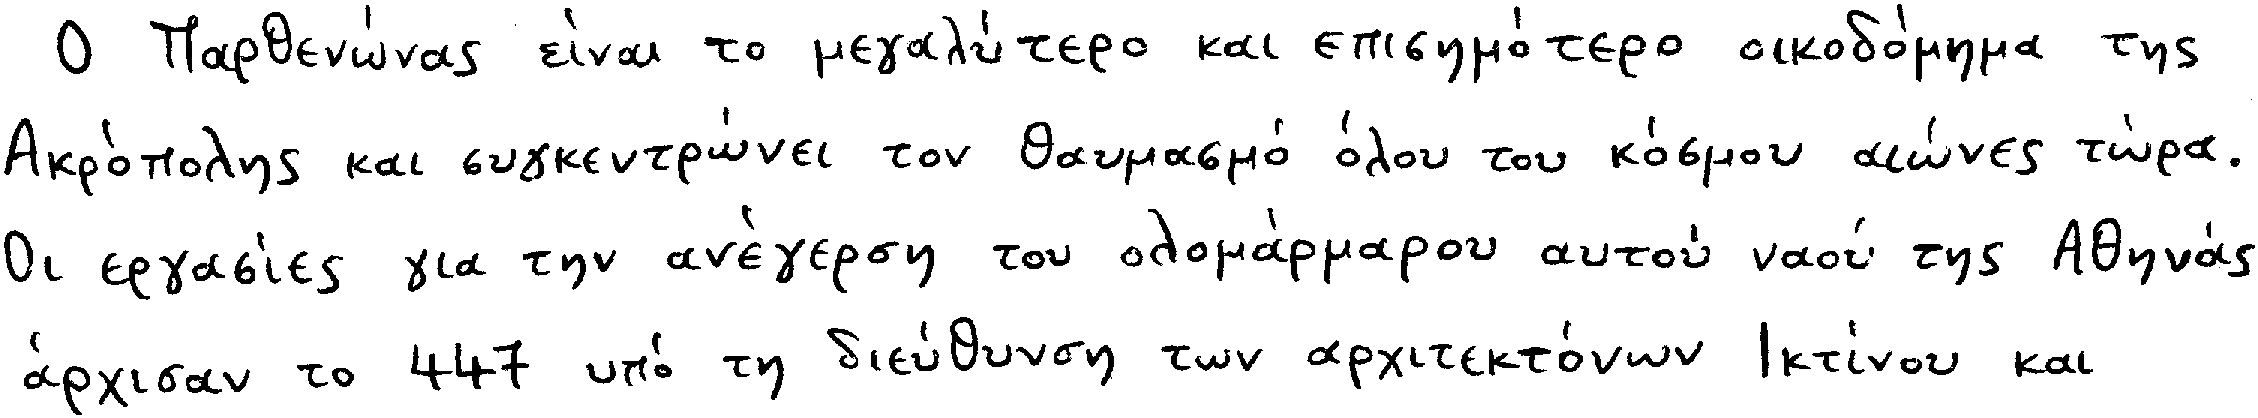 Ο Παρθενώνας είναι το μεγαλύτερο και επισημότερο οικοδόμημα της
Ακρόπολης και συγκεντρώνει τον θαυμασμό όλου του κόσμου αιώνες τώρα.
Οι εργασίες για την ανέγερση του ολομάρμαρου αυτού ναού της Αθηνάς
άρχισαν το 447 υπό τη διεύθυνση των αρχιτεκτόνων Ικτίνου και